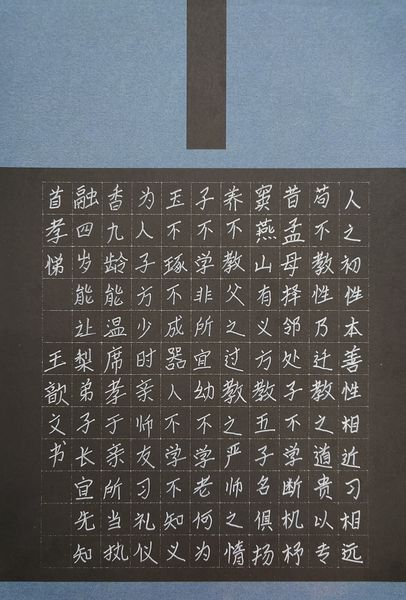 人之初性本善性相近习相远
苟不教性乃迁教之道贵以专
昔孟母择邻处子不学断机杼
窦燕山有义方教五子名俱扬
养不教父之过教之严师之情
子不学非所宜幼不学老何为
玉不琢不成器人不学不知义
为人子方少时亲师友习礼仪
香九龄能温席孝于亲所当执
融四岁能让梨弟子长宣先知
首孝悌 王歆文书